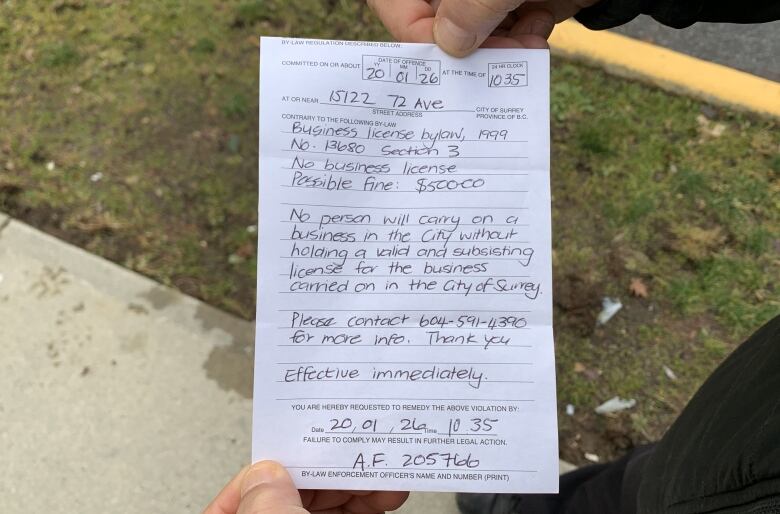 BY-LAW REGULATION DESCRIBED BELOW:
DATE OF OFFENCE
YY MM DD
24 HR CLOCK
COMMITTED ON OR ABOUT 20 01 26 AT THE TIME OF 1035
AT OR NEAR 15122 72 Ave
STREET ADDRESS
CITY OF SURREY
PROVINCE OF B.C.
CONTRARY TO THE FOLLOWING BY-LAW
Business license bylaw, 1999
No. 13680 Section 3
No business license
Possible fine: $500.00
No person will carry on a
business in the City without
holding a valid and subsisting
license for the business
carried on in the City of Surrey.
Please contact 604-591-4390
for more info. Thank you
Effective immediately.
YOU ARE HEREBY REQUESTED TO REMEDY THE ABOVE VIOLATION BY:
Date 20, 01, 26 Time 10 35
FAILURE TO COMPLY MAY RESULT IN FURTHER LEGAL ACTION.
A.F. 205766
BY-LAW ENFORCEMENT OFFICER'S NAME AND NUMBER (PRINT)